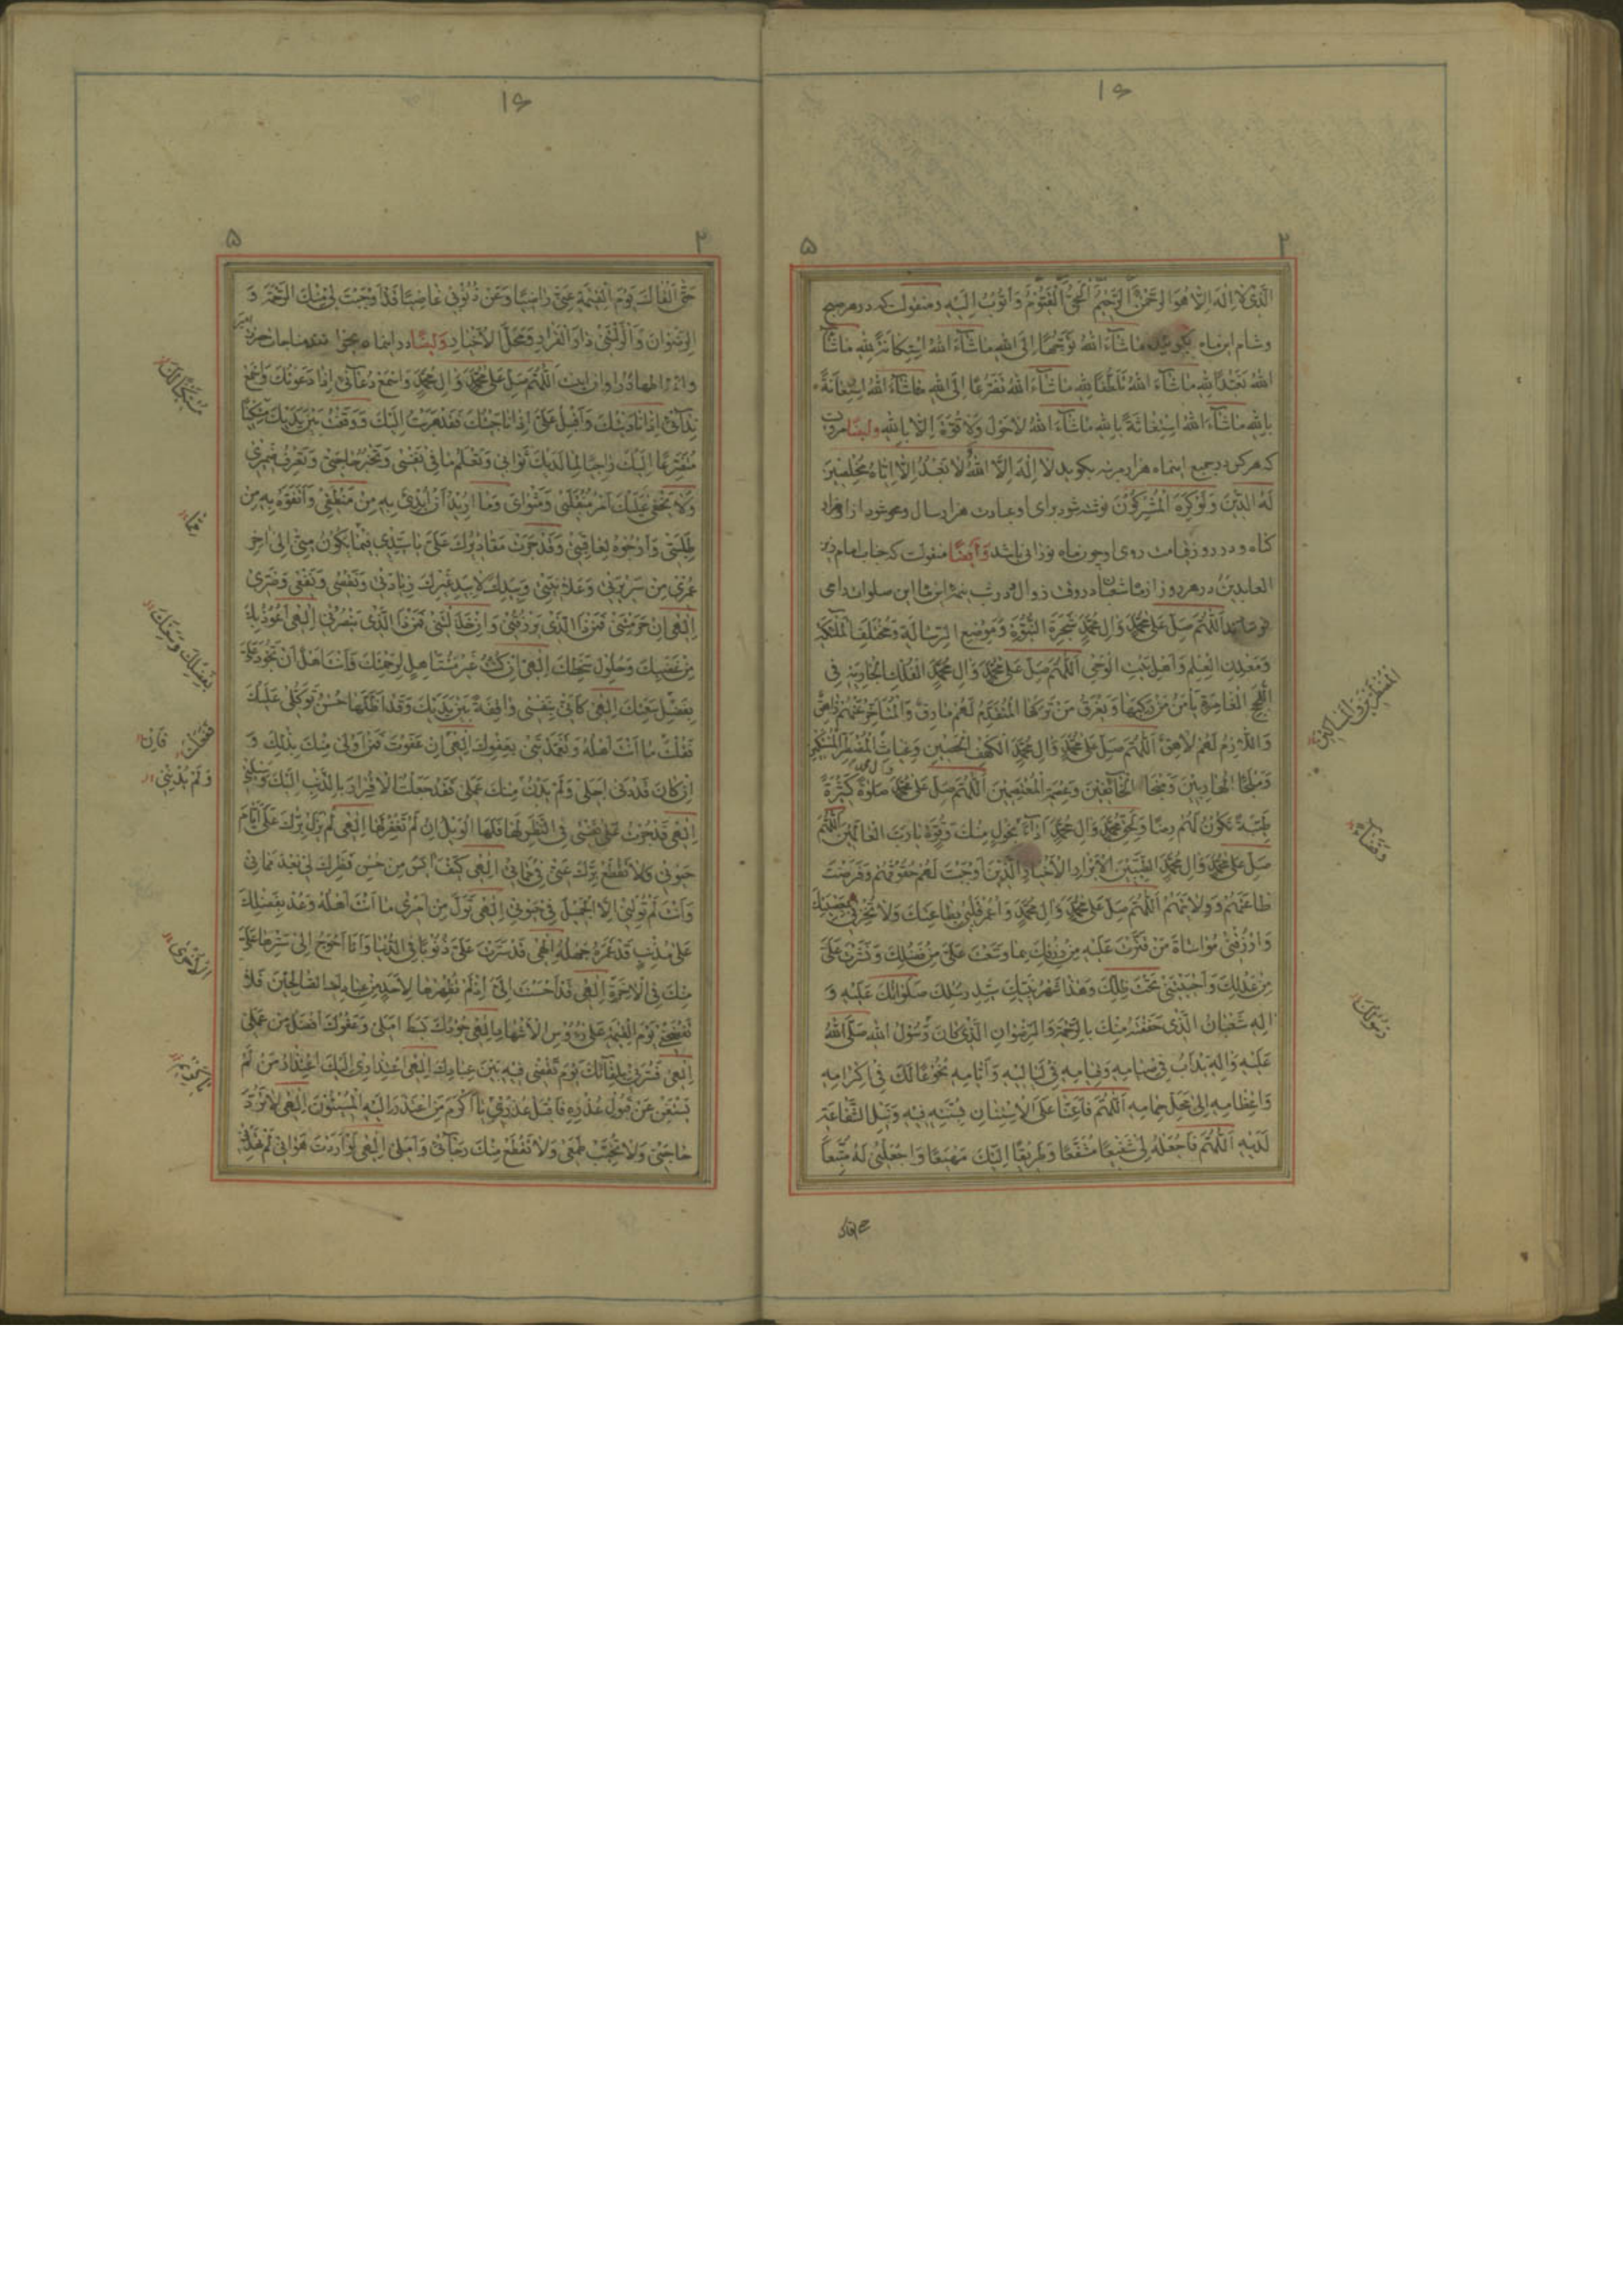 ١٦
٢
۵
الَّذی لا اِلهَ اِلّا هُوَ الرَّحْمنُ الرَّحیمُ الْحَیُّ الْقَیُّومُ وَاَتُوبُ اِلَیْهِ و منقولست که در هر صبح
وشام این ماه بگوید ماشآءَ اللهُ تَوَجُّهًا اِلَی اللهِ ماشآءَ اللهُ اِسْتِکانَةً لِلّهِ ماشآءَ
اللهُ تَعَبُّدًا لِلّهِ ماشآءَ اللهُ تَلَطُّفًا لِلّهِ ماشآءَ اللهُ تَضَرُّعًا اِلَی اللهِ ماشآءَ اللهُ اسْتِعانَةً
بِاللهِ ماشآءَ اللهُ اسْتِغاثَةً بِاللهِ ماشآءَ اللهُ لا حَوْلَ وَلا قُوَّةَ اِلّا بِاللهِ وایضًا مرویست
که هرکس در جمیع اینماه هزار مرتبه بگوید لا اِلهَ اِلَّا اللهُ وَلا نَعْبُدُ اِلّا اِیّاهُ مُخْلِصینَ
لَهُ الدّینَ وَلَوْ کَرِهَ الْمُشْرِکُونَ نوشته شود برای او عبادت هزار سال و محو شود از او هزار
گناه و در روز قیامت روی او چون ماه نورانی باشد وَاَیْضًا منقولست که جناب امام زین
العابدین در هر روز از ماه شعبان در وقت زوال و در شب نیمه این ماه این صلوات را می
فرمودند اَللّهُمَّ صَلِّ عَلی مُحَمَّدٍ وَالِ مُحَمَّدٍ شَجَرَةِ النُّبُوَّةِ وَمَوْضِعِ الرِّسالَةِ وَمُخْتَلَفِ الْمَلئِکَةِ
وَمَعْدِنِ الْعِلْمِ وَاَهْلِ بَیْتِ الْوَحْیِ اَللّهُمَّ صَلِّ عَلی مُحَمَّدٍ وَالِ مُحَمَّدٍ الْفُلْکِ الْجارِیَةِ فِی
اللُّجَجِ الْغامِرَةِ یَاْمَنُ مَنْ رَکِبَها وَیَغْرَقُ مَنْ تَرَکَهَا الْمُتَقَدِّمُ لَهُمْ مارِقٌ وَالْمُتَاَخِّرُ عَنْهُمْ زاهِقٌ
وَاللّازِمُ لَهُمْ لاحِقٌ اَللّهُمَّ صَلِّ عَلی مُحَمَّدٍ وَالِ مُحَمَّدٍ الْکَهْفِ الْحَصینِ وَغِیاثِ الْمُضْطَرِّ الْمُسْتَکینِ
وَمَلْجَأِ الْهارِبینَ وَمَنْجَا الْخآئِفینَ وَعِصْمَةِ الْمُعْتَصِمینَ اَللّهُمَّ صَلِّ عَلی مُحَمَّدٍ وال محمد صَلوةً کَثیرَةً
طَیِّبَةً تَکُونُ لَهُمْ رِضًا وَلِحَقِّ مُحَمَّدٍ وَالِ مُحَمَّدٍ اَدآءً بِحَوْلٍ مِنْکَ وَقُوَّةٍ یا رَبَّ الْعالَمینَ اَللّهُمَّ
صَلِّ عَلی مُحَمَّدٍ وَالِ مُحَمَّدٍ الطَّیِّبینَ الْاَبْرارِ الْاَخْیارِ الَّذینَ اَوْجَبْتَ لَهُمْ حُقُوقَهُمْ وَفَرَضْتَ
طاعَتَهُمْ وَوِلایَتَهُمْ اَللّهُمَّ صَلِّ عَلی مُحَمَّدٍ وَالِ مُحَمَّدٍ وَاعْمُرْ قَلْبی بِطاعَتِکَ وَلا تُخْزِنی بِمَعْصِیَتِکَ
وَارْزُقْنی مُواساةَ مَنْ قَتَّرْتَ عَلَیْهِ مِنْ رِزْقِکَ بِما وَسَّعْتَ عَلَیَّ مِنْ فَضْلِکَ وَنَشَرْتَ عَلَیَّ
مِنْ عَدْلِکَ وَاَحْیَیْتَنی تَحْتَ ظِلِّکَ وَهذا شَهْرُ نَبِیِّکَ سَیِّدِ رُسُلِکَ صَلَواتُکَ عَلَیْهِ وَ
الِهِ شَعْبانُ الَّذی حَفَفْتَهُ مِنْکَ بِالرَّحْمَةِ وَالرِّضْوانِ الَّذی کانَ رَسُولُ اللهِ صَلَّی اللهُ
عَلَیْهِ وَالِهِ یَدْاَبُ فی صِیامِهِ وَقِیامِهِ فی لَیالیهِ وَاَیّامِهِ بُخُوعًا لَکَ فی اِکْرامِهِ
وَاِعْظامِهِ اِلی مَحَلِّ حِمامِهِ اَللّهُمَّ فَاَعِنّا عَلَی الْاِسْتِنانِ بِسُنَّتِهِ فیهِ وَنَیْلِ الشَّفاعَةِ
لَدَیْهِ اَللّهُمَّ فَاجْعَلْهُ لی شَفیعًا مُشَفَّعًا وَطَریقًا اِلَیْکَ مَهْیَعًا وَاجْعَلْنی لَهُ مُتَّبِعًا
١٦
٢
۵
حَتّی اَلْقاکَ یَوْمَ الْقِیمَةِ عَنّی راضِیًا وَعَنْ ذُنُوبی غاضِیًا قَدْ اَوْجَبْتَ لی مِنْکَ الرَّحْمَةَ وَ
الرِّضْوانَ وَاَنْزَلْتَنی دارَ الْقَرارِ وَمَحَلَّ الْاَخْیارِ وَایضًا در اینماه بخواند مناجات حضرت امیر
وائمه اطهار را و آن اینست اَللّهُمَّ صَلِّ عَلی مُحَمَّدٍ وَالِ مُحَمَّدٍ وَاسْمَعْ دُعآئی اِذا دَعَوْتُکَ وَاسْمَعْ
نِدآئی اِذا نادَیْتُکَ وَاَقْبِلْ عَلَیَّ اِذا ناجَیْتُکَ فَقَدْ هَرَبْتُ اِلَیْکَ وَوَقَفْتُ بَیْنَ یَدَیْکَ مُسْتَکینًا
مُتَضَرِّعًا اِلَیْکَ راجِیًا لِما لَدَیْکَ ثَوابی وَتَعْلَمُ ما فی نَفْسی وَتَخْبُرُ حاجَتی وَتَعْرِفُ ضَمیری
وَلا یَخْفی عَلَیْکَ اَمْرُ مُنْقَلَبی وَمَثْوایَ وَما اُریدُ اَنْ اُبْدِئَ بِهِ مِنْ مَنْطِقی وَاَتَفَوَّهُ بِهِ مِنْ
طَلِبَتی وَاَرْجُوهُ لِعاقِبَتی وَقَدْ جَرَتْ مَقادیرُکَ عَلَیَّ یا سَیِّدی فیما یَکُونُ مِنّی اِلی اخِرِ
عُمْری مِنْ سَریرَتی وَعَلانِیَتی وَبِیَدِکَ لا بِیَدِ غَیْرِکَ زِیادَتی وَنَقْصی وَنَفْعی وَضَرّی
اِلهی اِنْ حَرَمْتَنی فَمَنْ ذَا الَّذی یَرْزُقُنی وَاِنْ خَذَلْتَنی فَمَنْ ذَا الَّذی یَنْصُرُنی اِلهی اَعُوذُ بِکَ
مِنْ غَضَبِکَ وَحُلُولِ سَخَطِکَ اِلهی اِنْ کُنْتُ غَیْرَ مُسْتَاْهِلٍ لِرَحْمَتِکَ فَاَنْتَ اَهْلٌ اَنْ تَجُودَ عَلَیَّ
بِفَضْلِ سَعَتِکَ اِلهی کَاَنّی بِنَفْسی واقِفَةٌ بَیْنَ یَدَیْکَ وَقَدْ اَظَلَّها حُسْنُ تَوَکُّلی عَلَیْکَ
فَقُلْتَ ما اَنْتَ اَهْلُهُ وَتَغَمَّدْتَنی بِعَفْوِکَ اِلهی اِنْ عَفَوْتَ فَمَنْ اَوْلی مِنْکَ بِذلِکَ وَ
اِنْ کانَ قَدْ دَنی اَجَلی وَلَمْ یَدْنُ مِنْکَ عَمَلی فَقَدْ جَعَلْتُ الْاِقْرارَ بِالذَّنْبِ اِلَیْکَ وَسیلَتی
اِلهی قَدْ جُرْتُ عَلی نَفْسی فِی النَّظَرِ لَها فَلَهَا الْوَیْلُ اِنْ لَمْ تَغْفِرْ لَها اِلهی لَمْ یَزَلْ بِرُّکَ عَلَیَّ اَیّامَ
حَیوتی وَلا تَقْطَعْ بِرَّکَ عَنّی فی مَماتی اِلهی کَیْفَ ایَسُ مِنْ حُسْنِ نَظَرِکَ لی بَعْدَ مَماتی
وَاَنْتَ لَمْ تُوَلِّنی اِلّا الْجَمیلَ فی حَیوتی اِلهی تَوَلَّ مِنْ اَمْری ما اَنْتَ اَهْلُهُ وَعُدْ بِفَضْلِکَ
عَلی مُذْنِبٍ قَدْ غَمَرَهُ جَهْلُهُ اِلهی قَدْ سَتَرْتَ عَلَیَّ ذُنُوبًا فِی الدُّنْیا وَاَنَا اَحْوَجُ اِلی سَتْرِها عَلَیَّ
مِنْکَ فِی الْاخِرَةِ اِلهی قَدْ اَحْسَنْتَ اِلَیَّ اِذْ لَمْ تُظْهِرْها لِاَحَدٍ مِنْ عِبادِکَ الصّالِحینَ فَلا
تَفْضَحْنی یَوْمَ الْقِیمَةِ عَلی رُؤُسِ الْاَشْهادِ اِلهی جُودُکَ بَسَطَ اَمَلی وَعَفْوُکَ اَفْضَلُ مِنْ عَمَلی
اِلهی فَسُرَّنی بِلِقآئِکَ یَوْمَ تَقْضی فیهِ بَیْنَ عِبادِکَ اِلهی اِعْتِذاری اِلَیْکَ اعْتِذارُ مَنْ لَمْ
یَسْتَغْنِ عَنْ قَبُولِ عُذْرِهِ فَاقْبَلْ عُذْری یا اَکْرَمَ مَنِ اعْتَذَرَ اِلَیْهِ الْمُسیئُونَ اِلهی لا تَرُدَّ
حاجَتی وَلا تُخَیِّبْ طَمَعی وَلا تَقْطَعْ مِنْکَ رَجآئی وَاَمَلی اِلهی لَوْ اَرَدْتَ هَوانی لَمْ تَهْدِنی
الْمُضْطَرّینَ وَالْمَساکینِ
وَقَضآءً
رَسُولِکَ
حتی القاک
بِفَضْلِکَ وَسَعَتِکَ
فَفَعَلْتَ
فَاِنْ
وَلَمْ یُدْنِنی